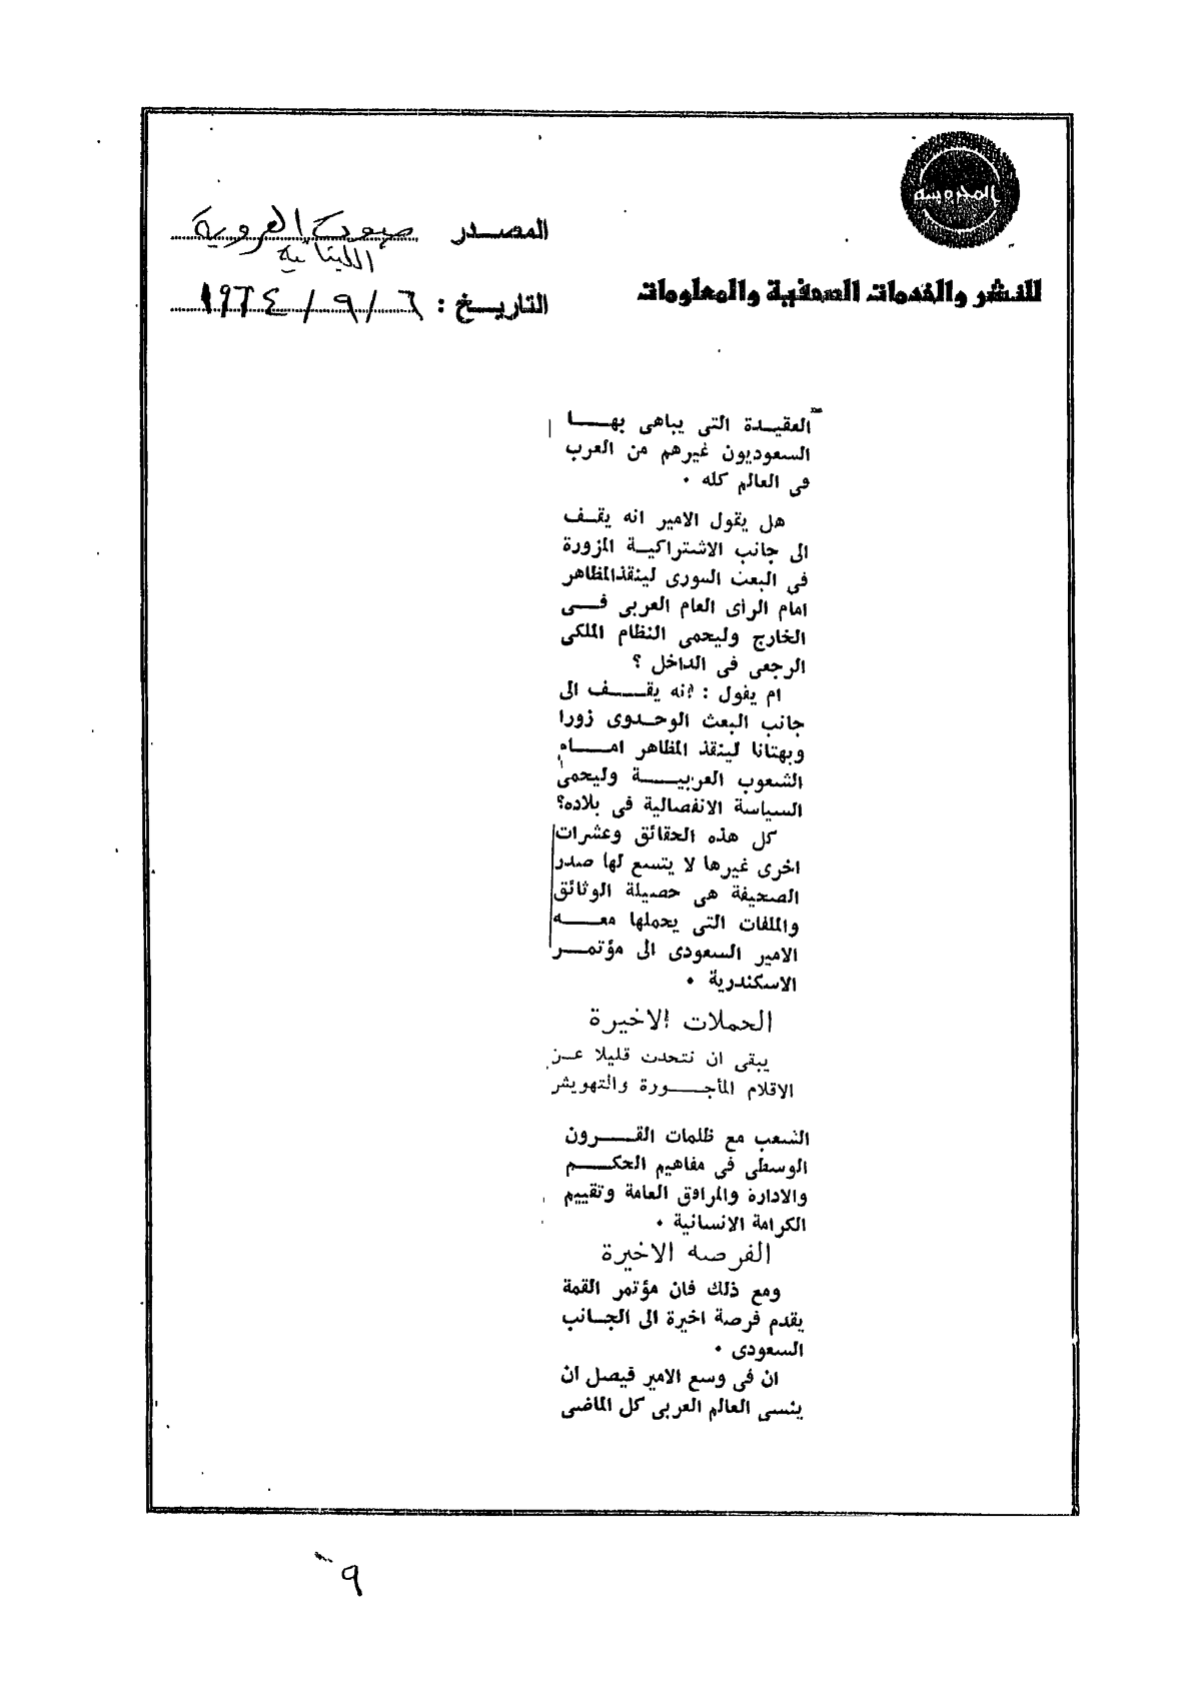 المحروسة
للنشر والخدمات الصحفية والمعلومات
المصـــدر صوت العروبة
اللبنانية
التاريـــخ : ٦ / ٩ / ١٩٦٤
العقيـدة التى يباهى بهـــا
السعوديون غيرهم من العرب
فى العالم كله ٠
هل يقول الامير انه يقــف
الى جانب الاشتراكيــة المزورة
فى البعث السورى لينقذ المظاهر
امام الرأى العام العربى فـــى
الخارج وليحمى النظام الملكى
الرجعى فى الداخل ؟
ام يقول : انه يقـــف الى
جانب البعث الوحـدوى زورا
وبهتانا لينقذ المظاهر امـــام
الشعوب العربيـــة وليحمى
السياسة الانفصالية فى بلاده؟
كل هذه الحقائق وعشرات
اخرى غيرها لا يتسع لها صدر
الصحيفة هى حصيلة الوثائق
والملفات التى يحملها معـــه
الامير السعودى الى مؤتمـــر
الاسكندرية ٠
الحملات الاخيرة
يبقى ان نتحدث قليلا عـن
الاقلام المأجـــورة والتهويش
الشعب مع ظلمات القـــرون
الوسطى فى مفاهيم الحكـــم
والادارة والمرافق العامة وتقييم
الكرامة الانسانية ٠
الفرصه الاخيرة
ومع ذلك فان مؤتمر القمة
يقدم فرصة اخيرة الى الجـانب
السعودى ٠
ان فى وسع الامير فيصل ان
ينسى العالم العربى كل الماضى
٩